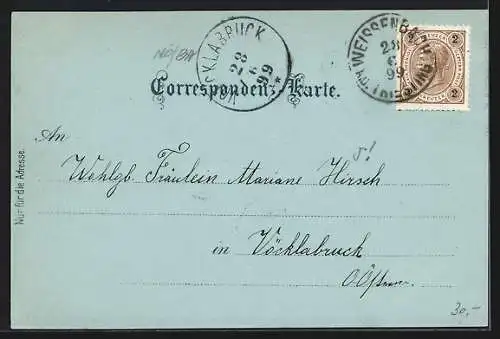 VÖCKLABRUCK
28
6
99
WEISSENBACH
28
6
99
2 2
Correspondenz-Karte.
An
Wohlgb. Fräulein Mariane Hirsch
in Vöcklabruck
Nur für die Adresse.
30,-